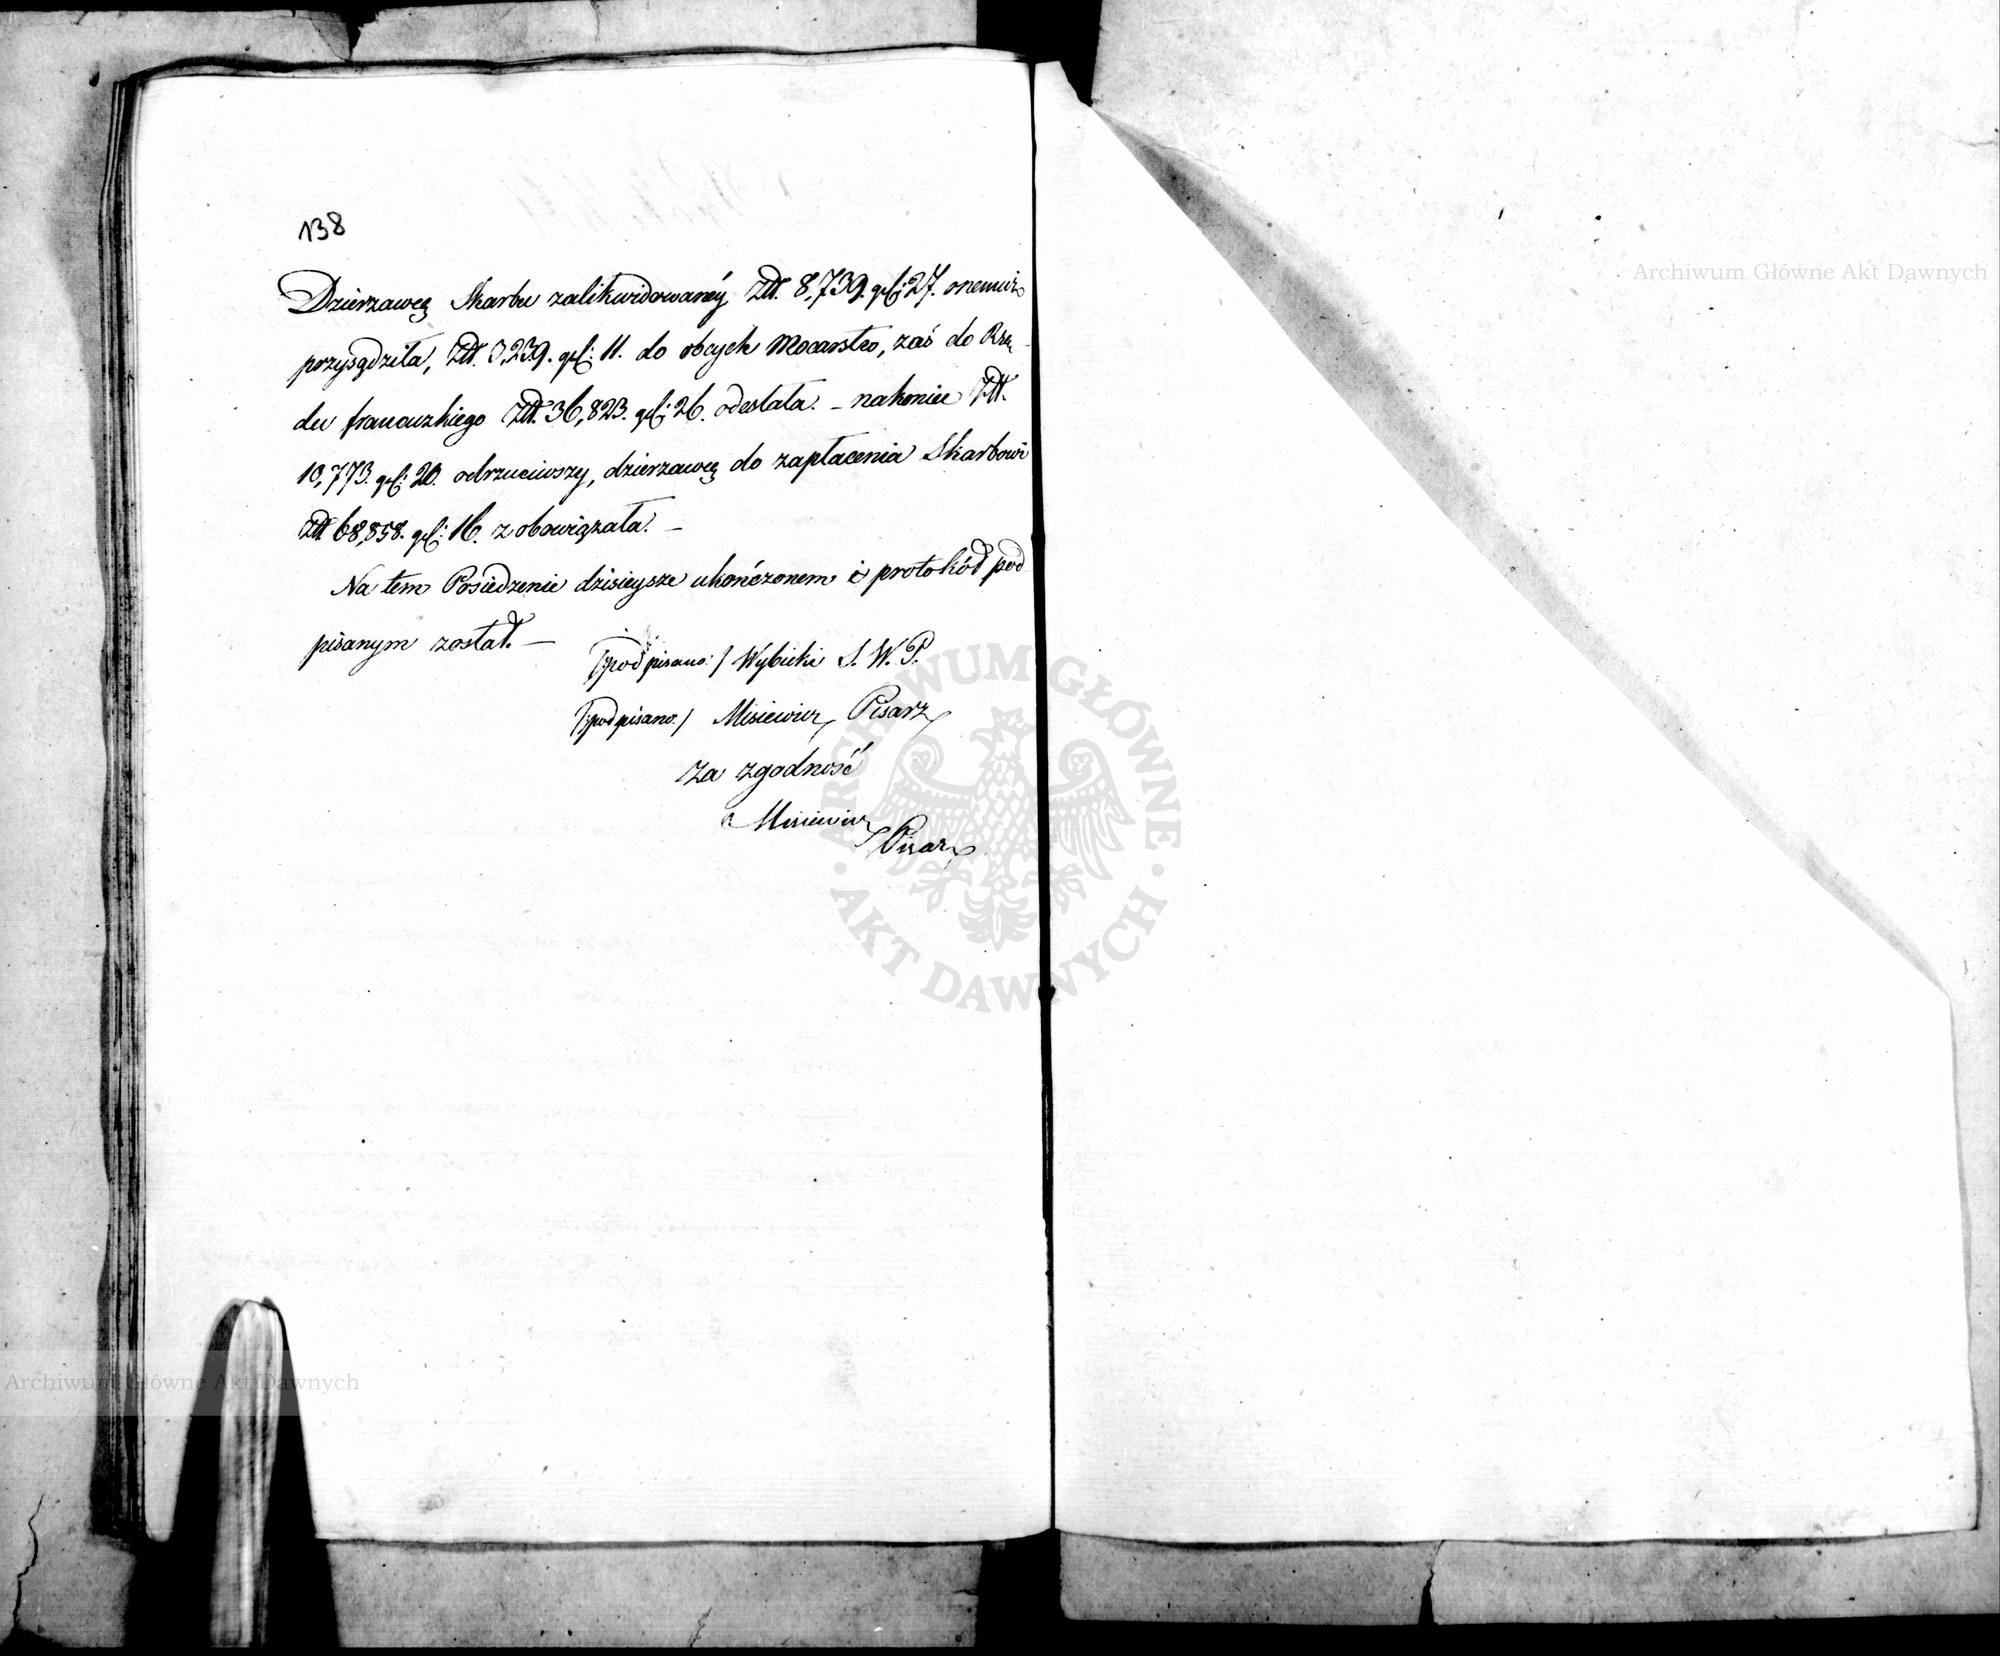 138
Dzierzawcę Skarbu zalikwidowanéy Złł. 8,739. gr: 27. onemuż
przysądziła, Złł. 3,239. gr: 11. do obcych Mocarstw, zaś do Rzą
du francuzkiego Złł. 36,823. gr: 26. odesłała. – nakoniec Złł.
10,773. gr: 20. odrzuciwszy, dzierzawcę do zapłacenia Skarbowi
Złł 68,858. gr: 16. zobowiązała. –
Na tem Posiedzenie dzisieysze ukończonem i protokół pod
pisanym został. –
/:podpisano:/ Wybicki S. W. P.
/:podpisano:/ Misiewicz Pisarz
Za zgodność
Misiewicz
Pisarz
ARCHIWUM GŁÓWNE
· AKT DAWNYCH ·
Archiwum Główne Akt Dawnych
Archiwum Główne Akt Dawnych